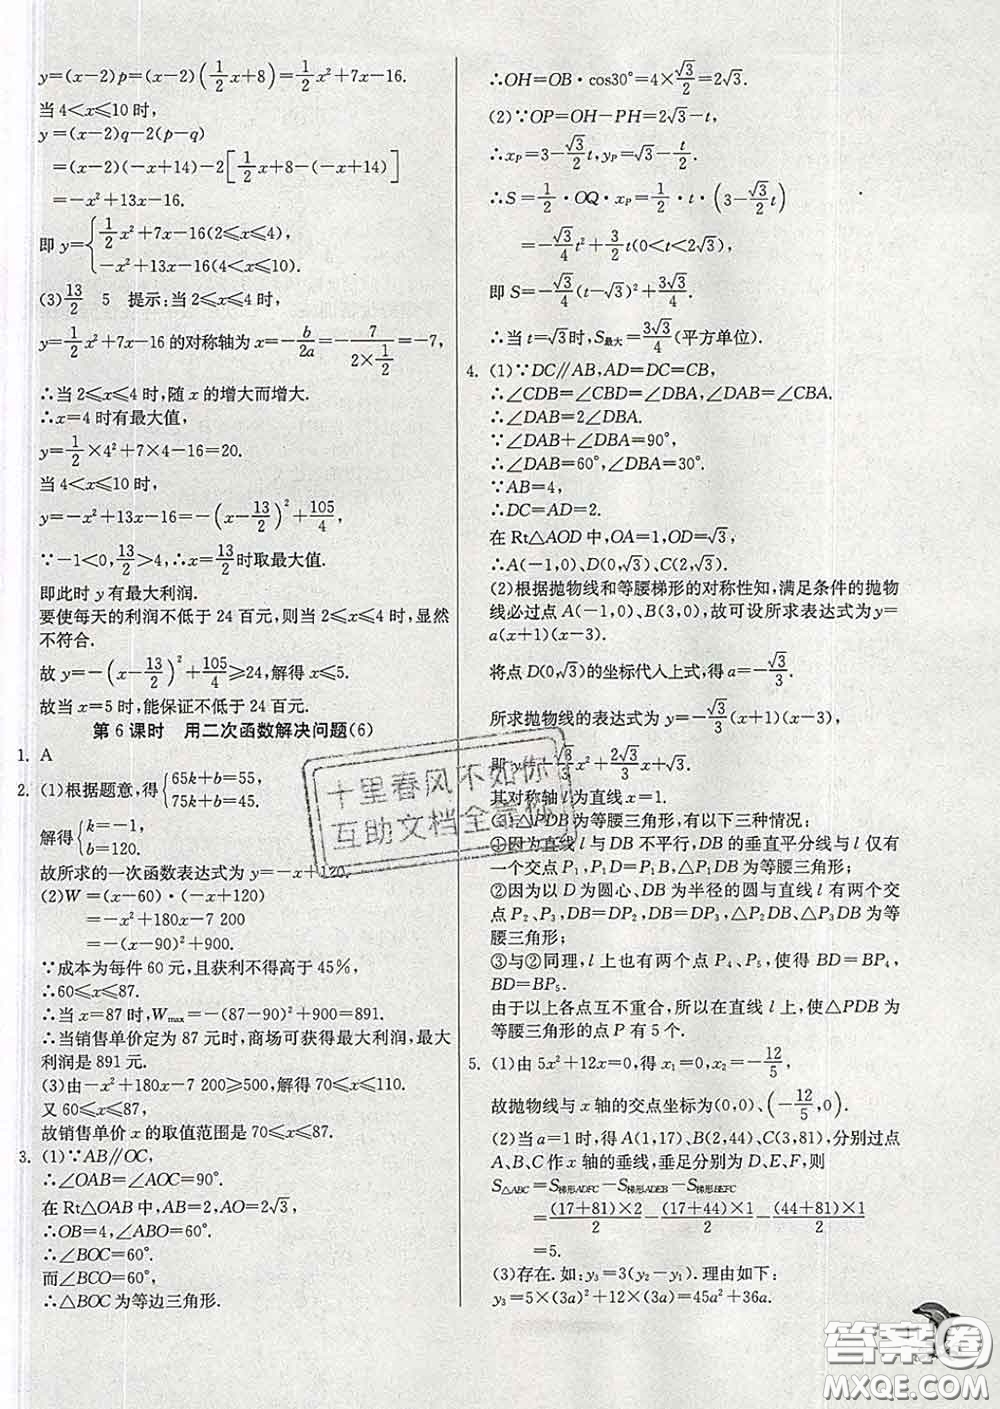 y=(x-2)p=(x-2)(1/2x+8)=1/2x²+7x-16.
当4<x⩽10时,
y=(x-2)q-2(p-q)
=(x-2)(-x+14)-2[1/2x+8-(-x+14)]
=-x²+13x-16.
即y={1/2x²+7x-16(2⩽x⩽4),
-x²+13x-16(4<x⩽10).
(3)13/2 5 提示:当2⩽x⩽4时,
y=1/2x²+7x-16的对称轴为x=-b/2a=-7/(2×1/2)=-7,
∴当2⩽x⩽4时,随x的增大而增大.
∴x=4时有最大值,
y=1/2×4²+7×4-16=20.
当4<x⩽10时,
y=-x²+13x-16=-(x-13/2)²+105/4,
∵-1<0,13/2>4,∴x=13/2时取最大值.
即此时y有最大利润.
要使每天的利润不低于24百元,则当2⩽x⩽4时,显然
不符合.
故y=-(x-13/2)²+105/4⩾24,解得x⩽5.
故当x=5时,能保证不低于24百元.
第6课时 用二次函数解决问题(6)
1. A
2. (1)根据题意,得{65k+b=55,
75k+b=45.
解得{k=-1,
b=120.
故所求的一次函数表达式为y=-x+120.
(2)W=(x-60)·(-x+120)
=-x²+180x-7 200
=-(x-90)²+900.
∵成本为每件60元,且获利不得高于45%,
∴60⩽x⩽87.
∴当x=87时,Wmax=-(87-90)²+900=891.
∴当销售单价定为87元时,商场可获得最大利润,最大
利润是891元.
(3)由-x²+180x-7 200⩾500,解得70⩽x⩽110.
又60⩽x⩽87,
故销售单价x的取值范围是70⩽x⩽87.
3. (1)∵AB∥OC,
∴∠OAB=∠AOC=90°.
在Rt△OAB中,AB=2,AO=2√3,
∴OB=4,∠ABO=60°.
∴∠BOC=60°.
而∠BCO=60°,
∴△BOC为等边三角形.
∴OH=OB·cos30°=4×√3/2=2√3.
(2)∵OP=OH-PH=2√3-t,
∴xP=3-√3/2t,yP=√3-t/2.
∴S=1/2·OQ·xP=1/2·t·(3-√3/2t)
=-√3/4t²+3/2t(0<t<2√3),
即S=-√3/4(t-√3)²+3√3/4.
∴当t=√3时,S最大=3√3/4(平方单位).
4. (1)∵DC∥AB,AD=DC=CB,
∴∠CDB=∠CBD=∠DBA,∠DAB=∠CBA.
∴∠DAB=2∠DBA.
∵∠DAB+∠DBA=90°,
∴∠DAB=60°,∠DBA=30°.
∵AB=4,
∴DC=AD=2.
在Rt△AOD中,OA=1,OD=√3,
∴A(-1,0)、D(0,√3)、C(2,√3).
(2)根据抛物线和等腰梯形的对称性知,满足条件的抛物
线必过点A(-1,0)、B(3,0),故可设所求表达式为y=
a(x+1)(x-3).
将点D(0,√3)的坐标代入上式,得a=-√3/3.
所求抛物线的表达式为y=-√3/3(x+1)(x-3),
即y=-√3/3x²+2√3/3x+√3.
其对称轴l为直线x=1.
(3)△PDB为等腰三角形,有以下三种情况:
①因为直线l与DB不平行,DB的垂直平分线与l仅有
一个交点P₁,P₁D=P₁B,△P₁DB为等腰三角形;
②因为以D为圆心、DB为半径的圆与直线l有两个交
点P₂、P₃,DB=DP₂,DB=DP₃,△P₂DB、△P₃DB为等
腰三角形;
③与②同理,l上也有两个点P₄、P₅,使得BD=BP₄,
BD=BP₅.
由于以上各点互不重合,所以在直线l上,使△PDB为
等腰三角形的点P有5个.
5. (1)由5x²+12x=0,得x₁=0,x₂=-12/5,
故抛物线与x轴的交点坐标为(0,0)、(-12/5,0).
(2)当a=1时,得A(1,17)、B(2,44)、C(3,81),分别过点
A、B、C作x轴的垂线,垂足分别为D、E、F,则
S△ABC=S梯形ADFC-S梯形ADEB-S梯形BEFC
=(17+81)×2/2-(17+44)×1/2-(44+81)×1/2
=5.
(3)存在.如:y₃=3(y₂-y₁).理由如下:
y₃=5×(3a)²+12×(3a)=45a²+36a.
十里春风不如你
互助文档全靠你
答案圈
MXQE.COM